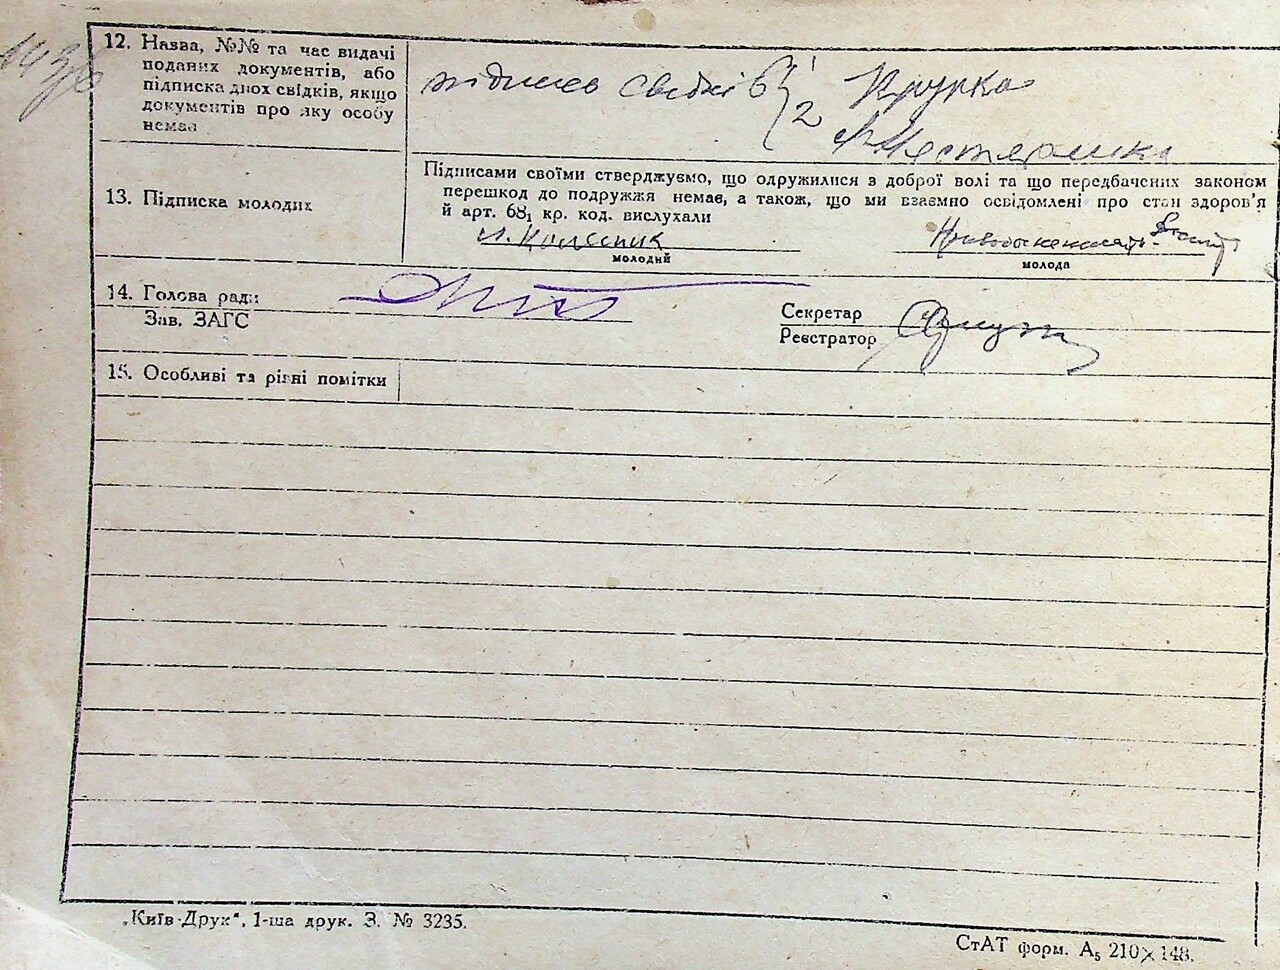 12. Назва, №№ та час видачі
поданих документів, або
підписка двох свідків, якщо
документів про яку особу
немає
підпись свідків 1
2
Підписами своїми стверджуємо, що одружилися з доброї волі та що передбачених законом
перешкод до подружжя немає, а також, що ми взаємно освідомлені про стан здоров'я
й арт. 68₁ кр. код. вислухали
13. Підписка молодих
Колесник
молодий
молода
14. Голова ради
Зав. ЗАГС
Секретар
Реєстратор
15. Особливі та різні помітки
„Київ-Друк“, 1-ша друк. З. № 3235.
СтАТ форм. А₅ 210×148.